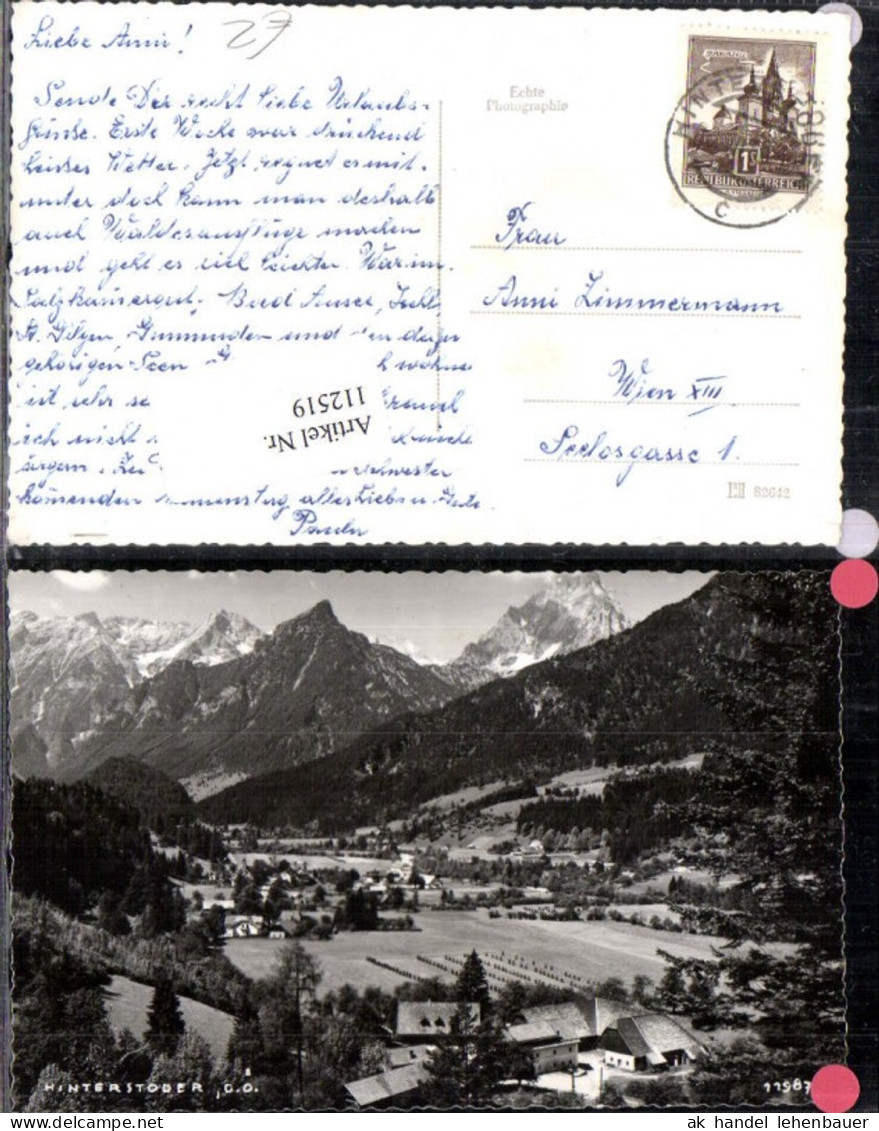 Liebe Anni!
27
Sende Dir recht liebe Urlaubs-
grüße. Erste Woche war drückend
heisses Wetter. Jetzt regnet es mit-
unter doch kann man deshalb
auch Waldesausflüge machen
und geht es viel leichter. War im
Salzkammergut, Bad Aussee, Ischl
St. Gilgen, Gmunden und den dazu
gehörigen Seen
ist sehr
ich nicht
ärgern.
kommenden alles Liebe u. Gute
Paula
Artikel Nr.
112519
Echte
Photographie
REPUBLIK ÖSTERREICH
C
Frau
Anni Zimmermann
Wien XIII
Seelosgasse 1.
82642
HINTERSTODER, O.Ö.
11987
ak handel lehenbauer